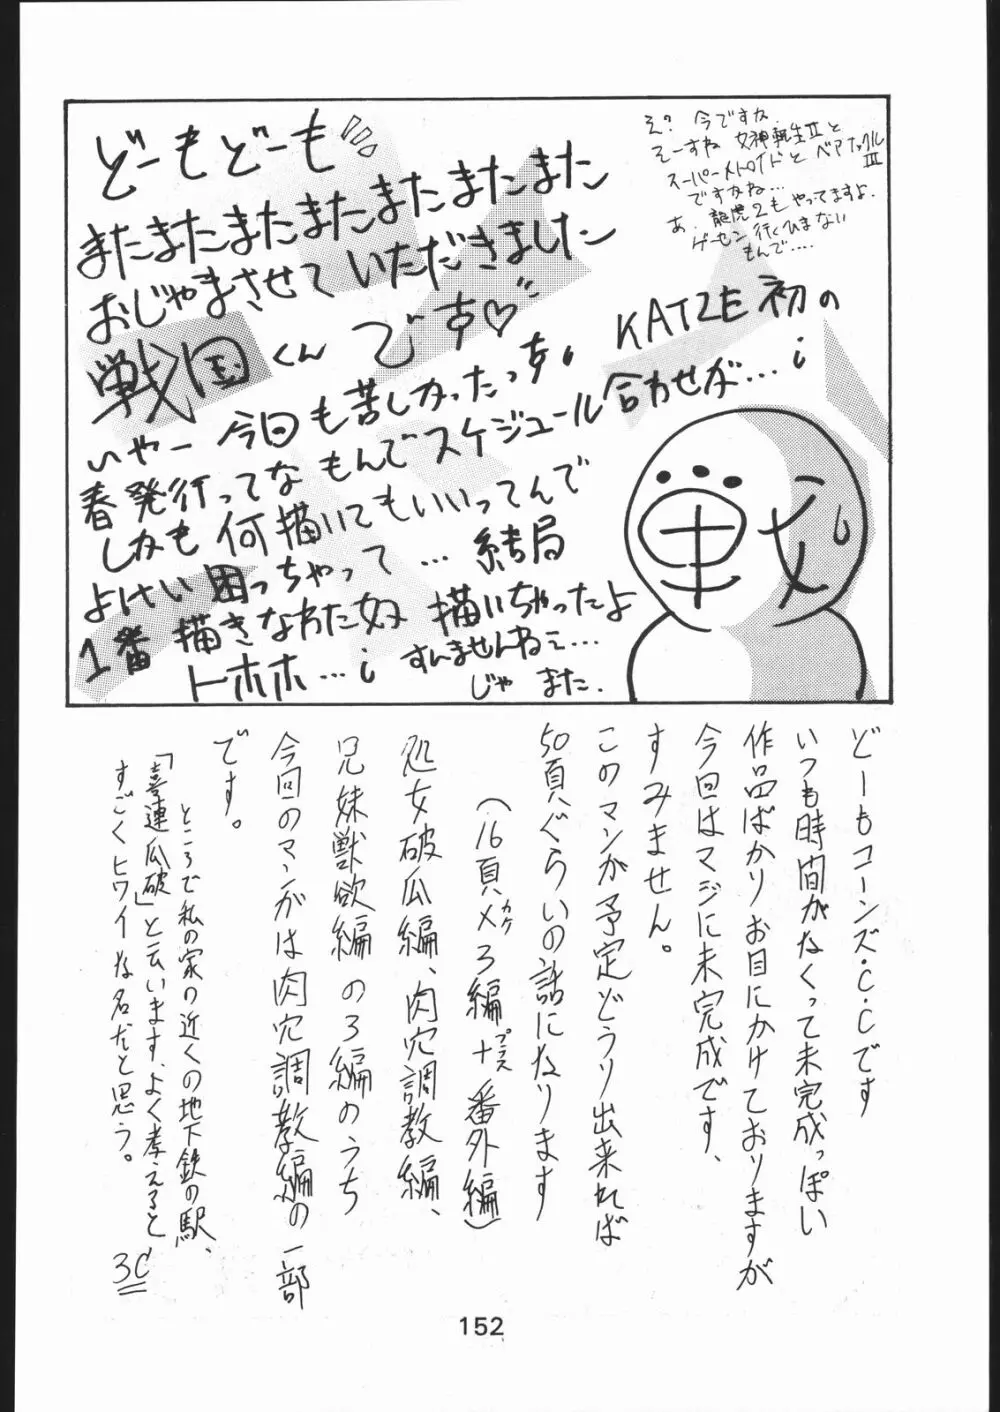 どーもどーも
またまたまたまたまたまたまた
おじゃまさせていただきました
戦国くんです♡
いやー今回も苦しかったっす。KATZE初の
春発行ってなもんでスケジュール合わせが…;
しかも何描いてもいいってんで
よけい困っちゃって…結局
1番描きなれた奴描いちゃったよ
トホホ…; すんませんねェ…
じゃ また.
え? 今ですか
そーすね 女神転生Ⅱと
スーパーメトロイドと ベアナックルⅢ
ですかね…
あ、龍虎2もやってますよ.
ゲーセン行くひまない
もんで……
どーもコーンズ・C・Cです
いつも時間がなくって未完成っぽい
作品ばかりお目にかけておりますが
今回はマジに未完成です、
すみません。
このマンガ予定どうり出来れば
50頁ぐらいの話になります
(16頁×カケ3編+プラス番外編)
処女破瓜編、肉穴調教編、
兄妹獣欲編の3編のうち
今回のマンガは肉穴調教編の一部
です。
ところで私の家の近くの地下鉄の駅、
「喜連瓜破」と云います、よく考えると、
すごくヒワイな名だと思う。
3C
152